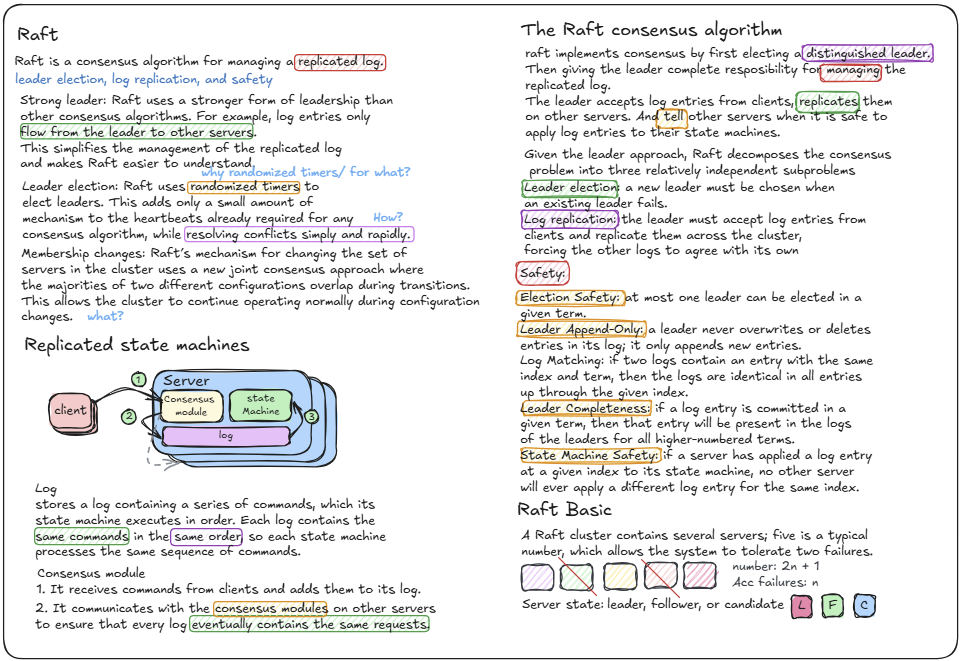 Raft
Raft is a consensus algorithm for managing a replicated log.
leader election, log replication, and safety
Strong leader: Raft uses a stronger form of leadership than
other consensus algorithms. For example, log entries only
flow from the leader to other servers.
This simplifies the management of the replicated log
and makes Raft easier to understand.
why randomized timers/ for what?
Leader election: Raft uses randomized timers to
elect leaders. This adds only a small amount of
mechanism to the heartbeats already required for any
How?
consensus algorithm, while resolving conflicts simply and rapidly.
Membership changes: Raft's mechanism for changing the set of
servers in the cluster uses a new joint consensus approach where
the majorities of two different configurations overlap during transitions.
This allows the cluster to continue operating normally during configuration
changes.
what?
Replicated state machines
client
1
2
3
Server
Consensus
module
state
Machine
log
Log
stores a log containing a series of commands, which its
state machine executes in order. Each log contains the
same commands in the same order, so each state machine
processes the same sequence of commands.
Consensus module
1. It receives commands from clients and adds them to its log.
2. It communicates with the consensus modules on other servers
to ensure that every log eventually contains the same requests.
The Raft consensus algorithm
raft implements consensus by first electing a distinguished leader.
Then giving the leader complete resposibility for managing the
replicated log.
The leader accepts log entries from clients, replicates them
on other servers. And tell other servers when it is safe to
apply log entries to their state machines.
Given the leader approach, Raft decomposes the consensus
problem into three relatively independent subproblems
Leader election: a new leader must be chosen when
an existing leader fails.
Log replication: the leader must accept log entries from
clients and replicate them across the cluster,
forcing the other logs to agree with its own
Safety:
Election Safety: at most one leader can be elected in a
given term.
Leader Append-Only: a leader never overwrites or deletes
entries in its log; it only appends new entries.
Log Matching: if two logs contain an entry with the same
index and term, then the logs are identical in all entries
up through the given index.
Leader Completeness: if a log entry is committed in a
given term, then that entry will be present in the logs
of the leaders for all higher-numbered terms.
State Machine Safety: if a server has applied a log entry
at a given index to its state machine, no other server
will ever apply a different log entry for the same index.
Raft Basic
A Raft cluster contains several servers; five is a typical
number, which allows the system to tolerate two failures.
number: 2n + 1
Acc failures: n
Server state: leader, follower, or candidate
L
F
C